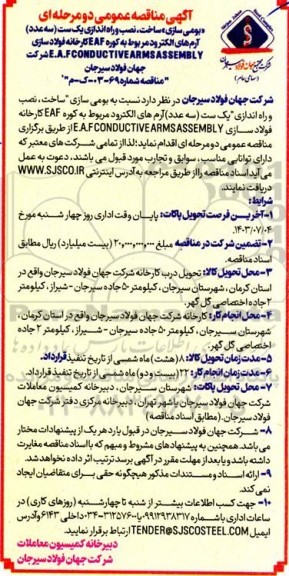 آگهی مناقصه عمومی دو مرحله ای
«بومی سازی» ساخت، نصب و راه اندازی یک ست (سه عدد)
آرم های الکترود مربوط به کوره EAF کارخانه فولاد سازی
E.A.F CONDUCTIVE ARMS ASSEMBLY شرکت
جهان فولاد سیرجان
"مناقصه شماره ۶۹-۰۳-ک-م"
شرکت جهان فولاد سیرجان
(سهامی عام)
شرکت جهان فولاد سیرجان در نظر دارد نسبت به بومی سازی "ساخت، نصب
و راه اندازی "یک ست (سه عدد) آرم های الکترود مربوط به کوره EAF کارخانه
فولاد سازی E.A.F CONDUCTIVE ARMS ASSEMBLY از طریق برگزاری
مناقصه عمومی دو مرحله ای اقدام نماید؛ لذا از تمامی شرکت های معتبر که
دارای توانایی مناسب، سوابق و تجارب مورد قبول می باشند، دعوت به عمل
می آید اسناد مناقصه را از طریق مراجعه به آدرس اینترنتی WWW.SJSCO.IR
دریافت نمایند.
شرایط:
۱-آخرین فرصت تحویل پاکات: پایان وقت اداری روز چهارشنبه مورخ
۱۴۰۳/۰۷/۰۴.
۲-تضمین شرکت در مناقصه مبلغ ۲۰,۰۰۰,۰۰۰,۰۰۰ (بیست میلیارد) ریال مطابق
اسناد مناقصه.
۳-محل تحویل کالا: تحویل درب کارخانه شرکت جهان فولاد سیرجان واقع در
استان کرمان، شهرستان سیرجان، کیلومتر ۵۰ جاده سیرجان - شیراز، کیلومتر
۲ جاده اختصاصی گل گهر.
۴-محل انجام کار: کارخانه شرکت جهان فولاد سیرجان واقع در استان کرمان،
شهرستان سیرجان، کیلومتر ۵۰ جاده سیرجان - شیراز، کیلومتر ۲ جاده
اختصاصی گل گهر.
۵-مدت زمان تحویل کالا: ۸ (هشت) ماه شمسی از تاریخ تنفیذ قرارداد.
۶-مدت زمان انجام کار: ۲۲ (بیست و دو) ماه شمسی از تاریخ تنفیذ قرارداد.
۷-محل تحویل پاکات: شهرستان سیرجان، دبیرخانه کمیسیون معاملات
شرکت جهان فولاد سیرجان یا شهر تهران، دبیرخانه مرکزی دفتر شرکت جهان
فولاد سیرجان. (مطابق اسناد مناقصه)
۸-شرکت جهان فولاد سیرجان در قبول یا رد هر یک از پیشنهادات مختار
می باشد همچنین به پیشنهادهای مشروط و مبهم که با اسناد مناقصه مغایرت
داشته باشد و یا بعد از مهلت مقرر در آگهی برسد ترتیب اثر داده نخواهد شد.
۹-ارائه اسناد و مستندات مذکور هیچگونه حقی برای متقاضیان ایجاد
نمی کند.
۱۰-جهت کسب اطلاعات بیشتر از شنبه تا چهارشنبه (روزهای کاری) در
ساعات اداری با شماره ۰۹۹۱۲۹۳۸۳۱۷ یا ۰۳۴-۳۱۲۵۷۶۰۰ داخلی ۶۱۴۳ و آدرس
ایمیل TENDER@SJSCOSTEEL.COM ارتباط برقرار نمایید.
دبیرخانه کمیسیون معاملات
شرکت جهان فولاد سیرجان